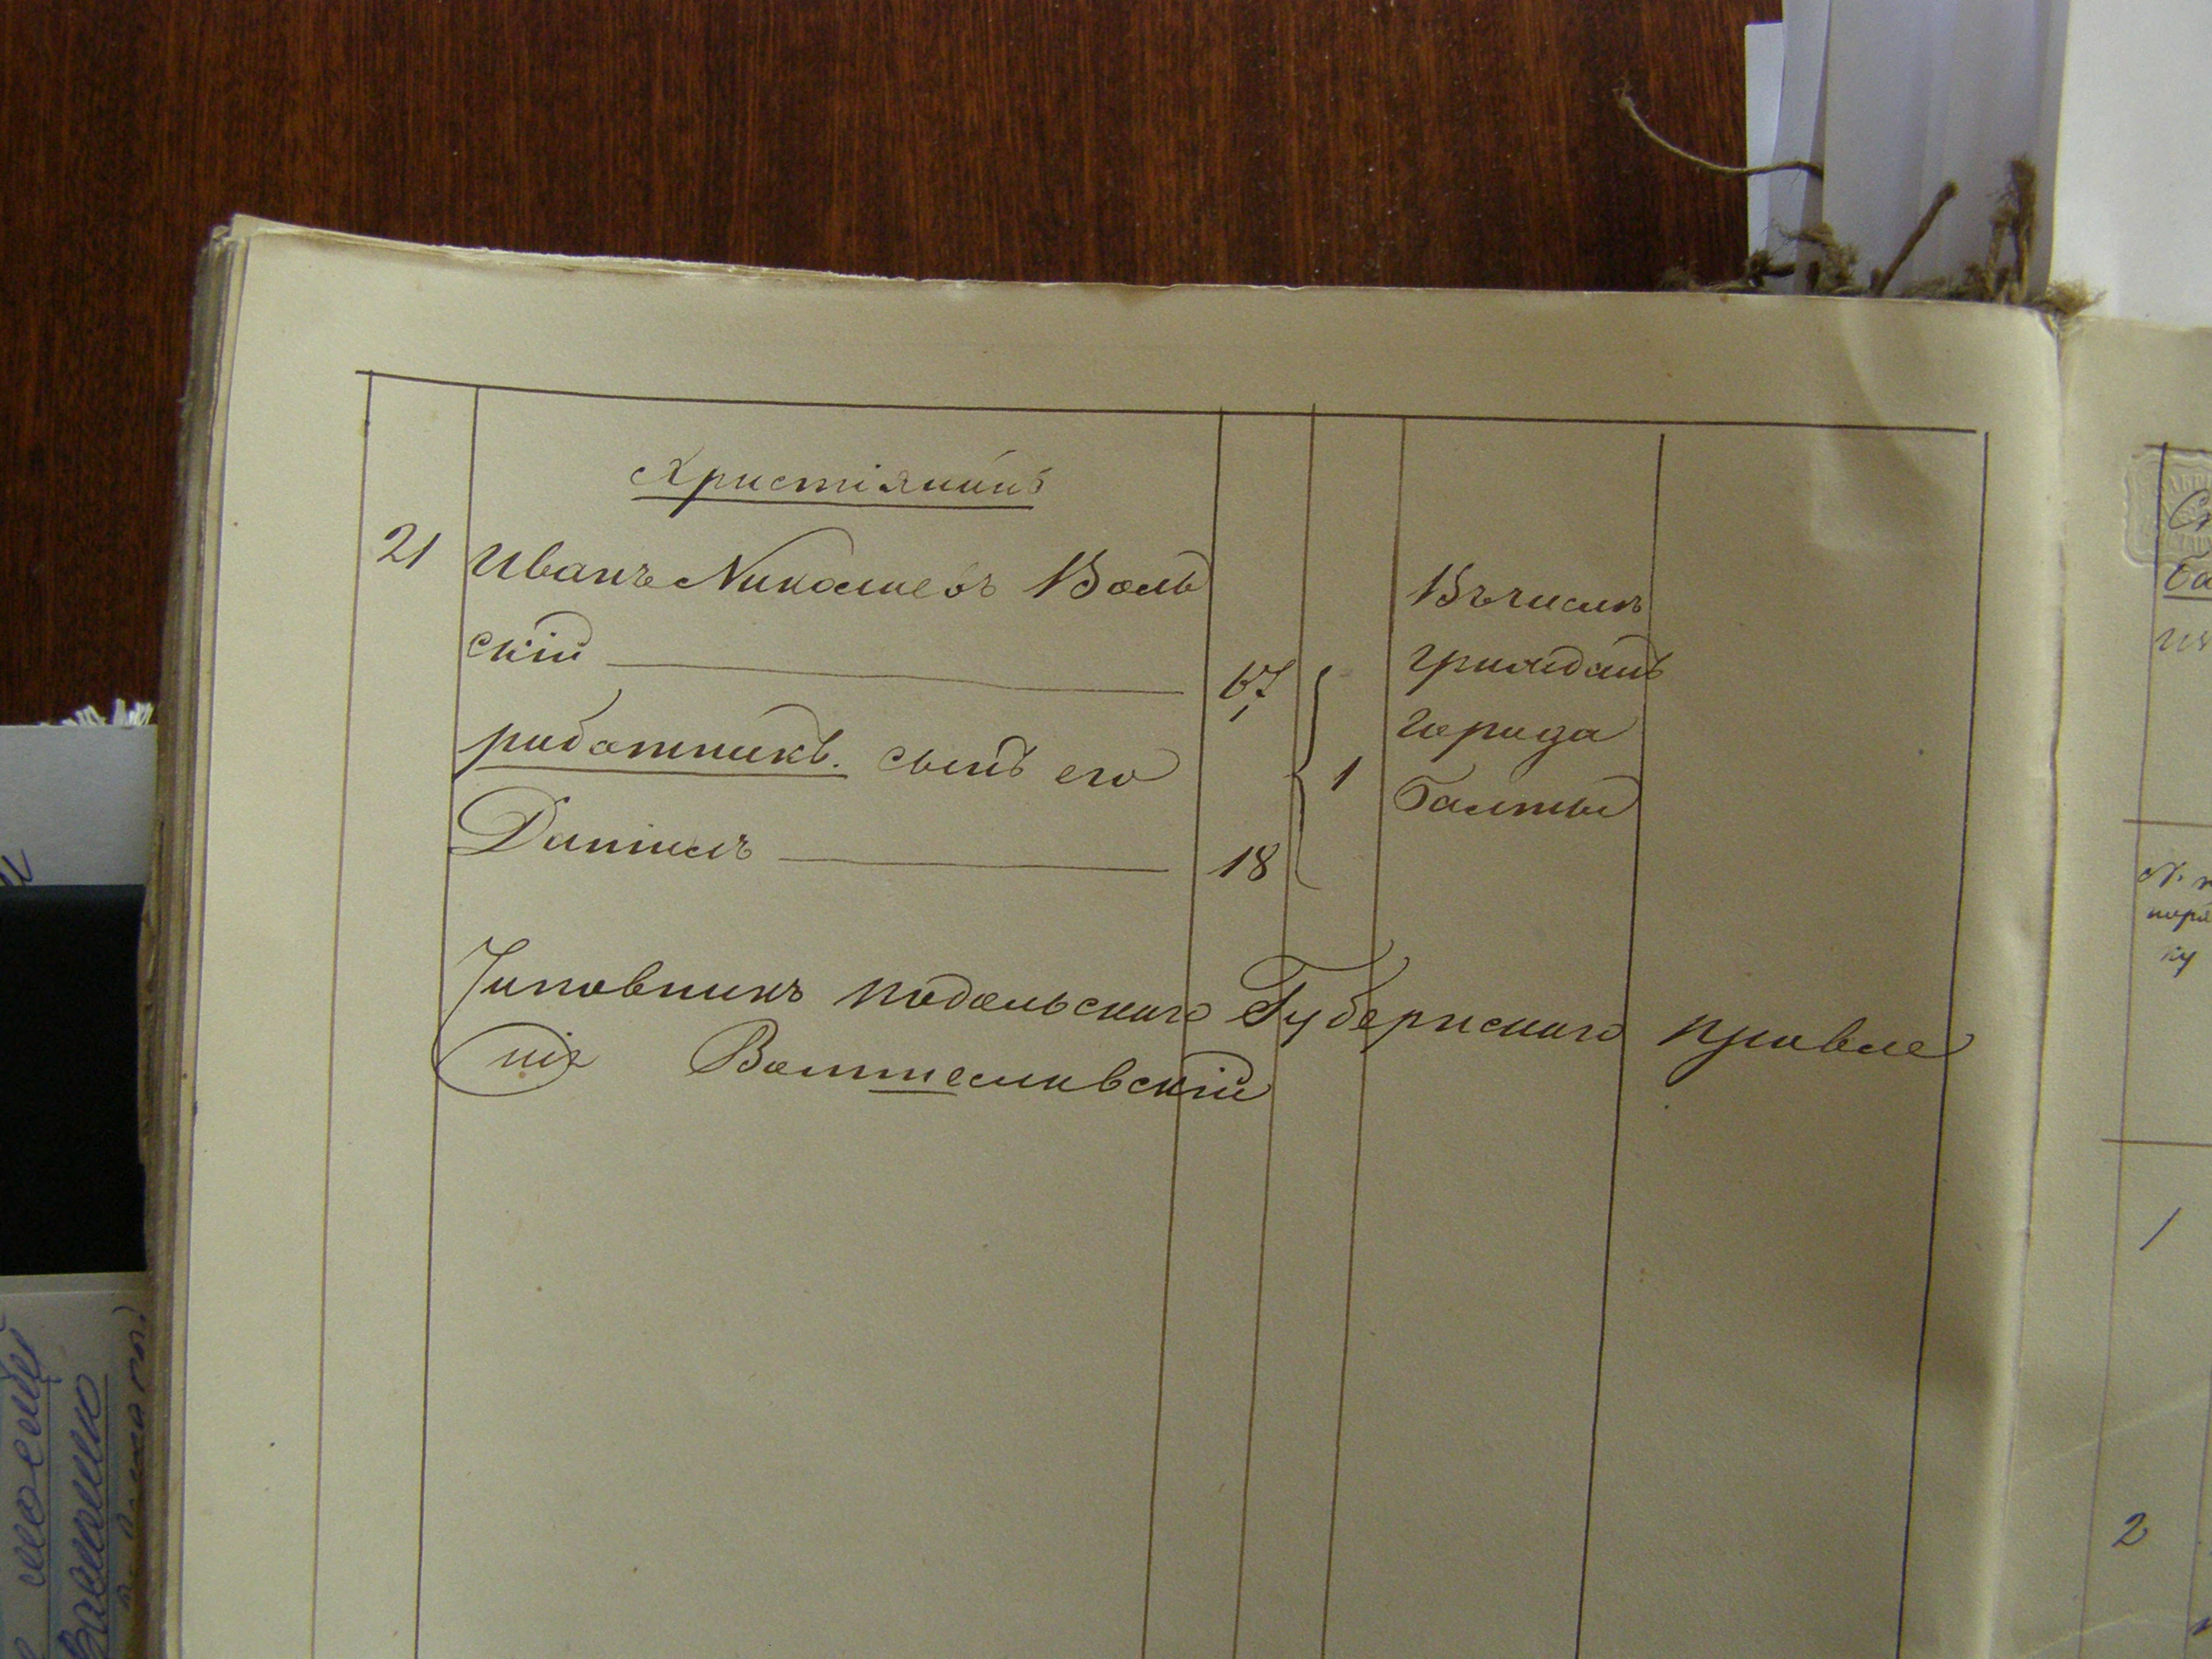 Христіянинъ
21 Иванъ Николаевъ Воль
скій 67
работникъ. сынъ его
Даниилъ 18
1
Въ числѣ
гражданъ
города
Балты
Чиновникъ Подольскаго Губернскаго Правле
нія
1
2